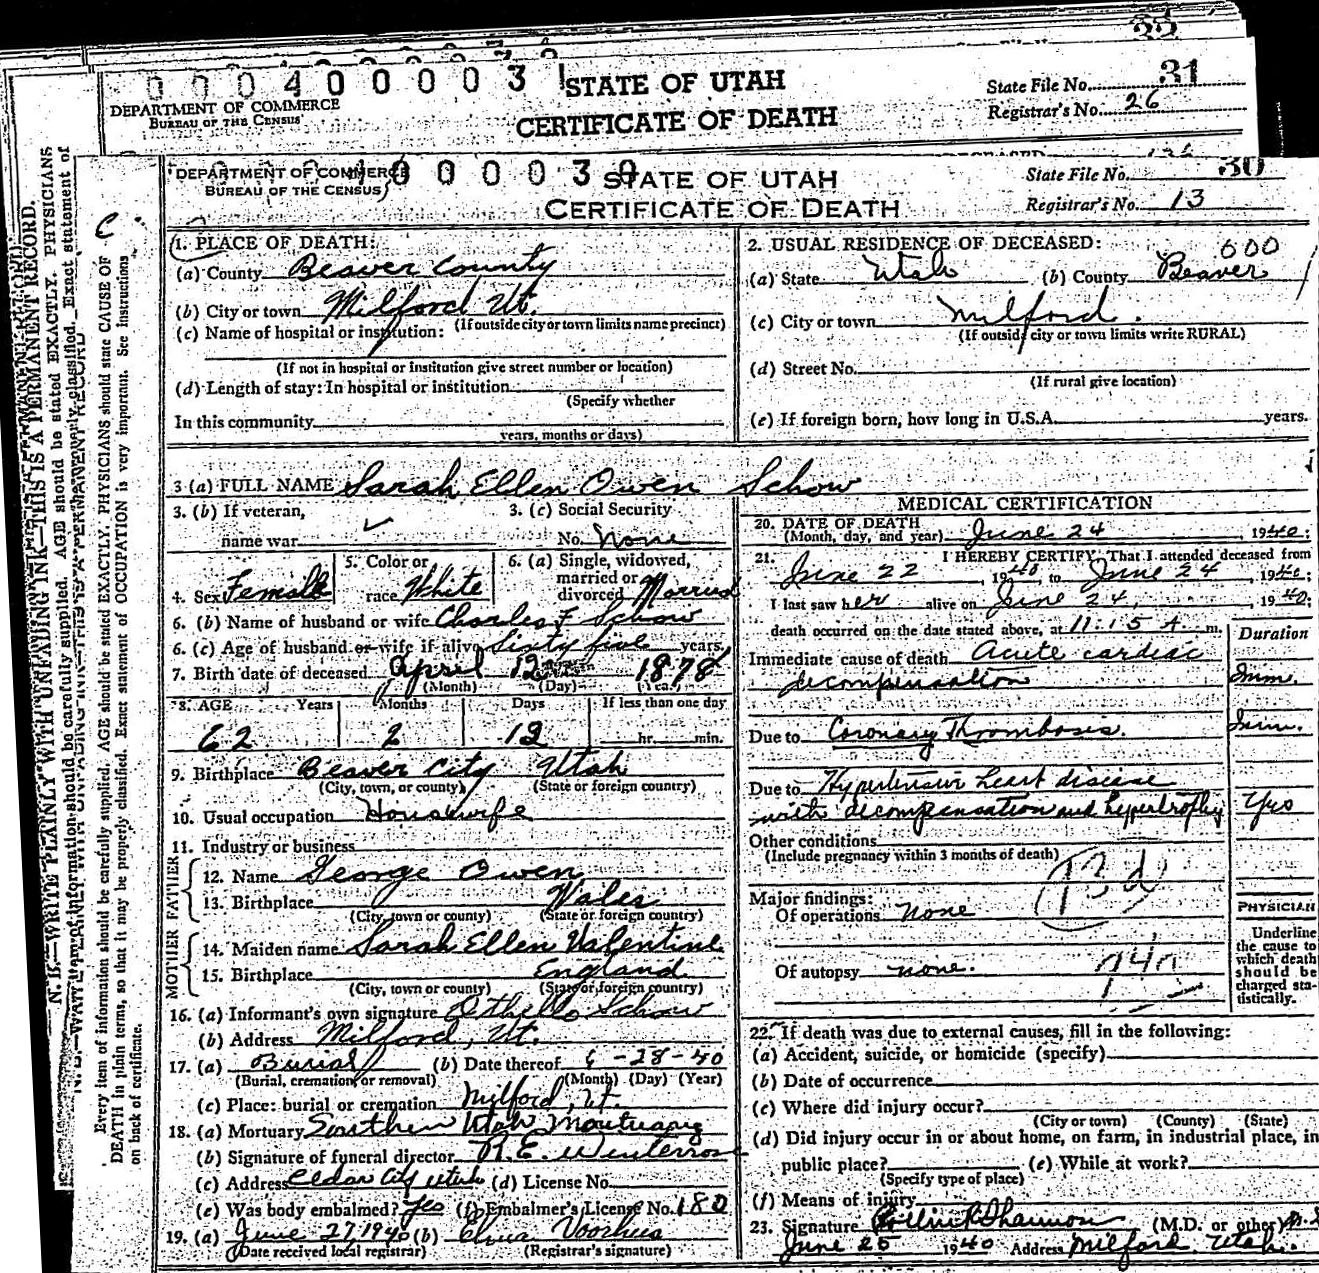 32
0 0 0 4 0 0 0 0 3 1
STATE OF UTAH
CERTIFICATE OF DEATH
DEPARTMENT OF COMMERCE
BUREAU OF THE CENSUS
State File No. 31
Registrar's No. 26
DEPARTMENT OF COMMERCE
BUREAU OF THE CENSUS
0 0 0 0 3 0
STATE OF UTAH
CERTIFICATE OF DEATH
State File No. 30
Registrar's No. 13
N. B.—WRITE PLAINLY WITH UNFADING INK—THIS IS A PERMANENT RECORD.
Every item of information should be carefully supplied. AGE should be stated EXACTLY. PHYSICIANS should state CAUSE OF
DEATH in plain terms, so that it may be properly classified. Exact statement of OCCUPATION is very important. See instructions
on back of certificate.
C
1. PLACE OF DEATH:
(a) County Beaver County
(b) City or town Milford Ut.
(If outside city or town limits name precinct)
(c) Name of hospital or institution:
(If not in hospital or institution give street number or location)
(d) Length of stay: In hospital or institution
(Specify whether
In this community
years, months or days)
2. USUAL RESIDENCE OF DECEASED:
000
(a) State Utah (b) County Beaver
(c) City or town Milford.
(If outside city or town limits write RURAL)
(d) Street No.
(If rural give location)
(e) If foreign born, how long in U.S.A. years.
3 (a) FULL NAME Sarah Ellen Owen Schow
3. (b) If veteran,
name war
3. (c) Social Security
No. None
4. Sex Female
5. Color or
race White
6. (a) Single, widowed,
married or
divorced Married
6. (b) Name of husband or wife Charles F Schow
6. (c) Age of husband or wife if alive Sixty five years
7. Birth date of deceased April 12 1878
(Month) (Day) (Year)
8. AGE Years Months Days If less than one day
62 2 12 hr. min.
9. Birthplace Beaver City Utah
(City, town, or county) (State or foreign country)
10. Usual occupation Housewife
11. Industry or business
FATHER
12. Name George Owen
13. Birthplace Wales
(City, town or county) (State or foreign country)
MOTHER
14. Maiden name Sarah Ellen Valentine
15. Birthplace England
(City, town or county) (State or foreign country)
16. (a) Informant's own signature Othello Schow
(b) Address Milford, Ut.
17. (a) Burial (b) Date thereof 6-28-40
(Burial, cremation or removal) (Month) (Day) (Year)
(c) Place: burial or cremation Milford, Ut.
18. (a) Mortuary Southern Utah Mortuary
(b) Signature of funeral director R. E. Winterrose
(c) Address Cedar City Utah (d) License No.
(e) Was body embalmed? Yes (f) Embalmer's License No. 180
19. (a) June 27, 1940 (b) Elvia Voorhees
(Date received local registrar) (Registrar's signature)
MEDICAL CERTIFICATION
20. DATE OF DEATH
(Month, day, and year) June 24 1940;
21. I HEREBY CERTIFY, That I attended deceased from
June 22, 1940, to June 24, 1940;
I last saw her alive on June 24, 1940;
death occurred on the date stated above, at 11:15 A. m.
Duration
Immediate cause of death Acute cardiac
decompensation Imm.
Due to Coronary Thrombosis. Imm.
Due to Hypertensive heart disease
with decompensation and hypertrophy Yrs
Other conditions
(Include pregnancy within 3 months of death)
Major findings:
Of operations none
Of autopsy none.
PHYSICIAN
Underline
the cause to
which death
should be
charged sta-
tistically.
22. If death was due to external causes, fill in the following:
(a) Accident, suicide, or homicide (specify)
(b) Date of occurrence
(c) Where did injury occur?
(City or town) (County) (State)
(d) Did injury occur in or about home, on farm, in industrial place, in
public place? (e) While at work?
(Specify type of place)
(f) Means of injury
23. Signature Shannon (M.D. or other)
June 25 1940 Address Milford, Utah.